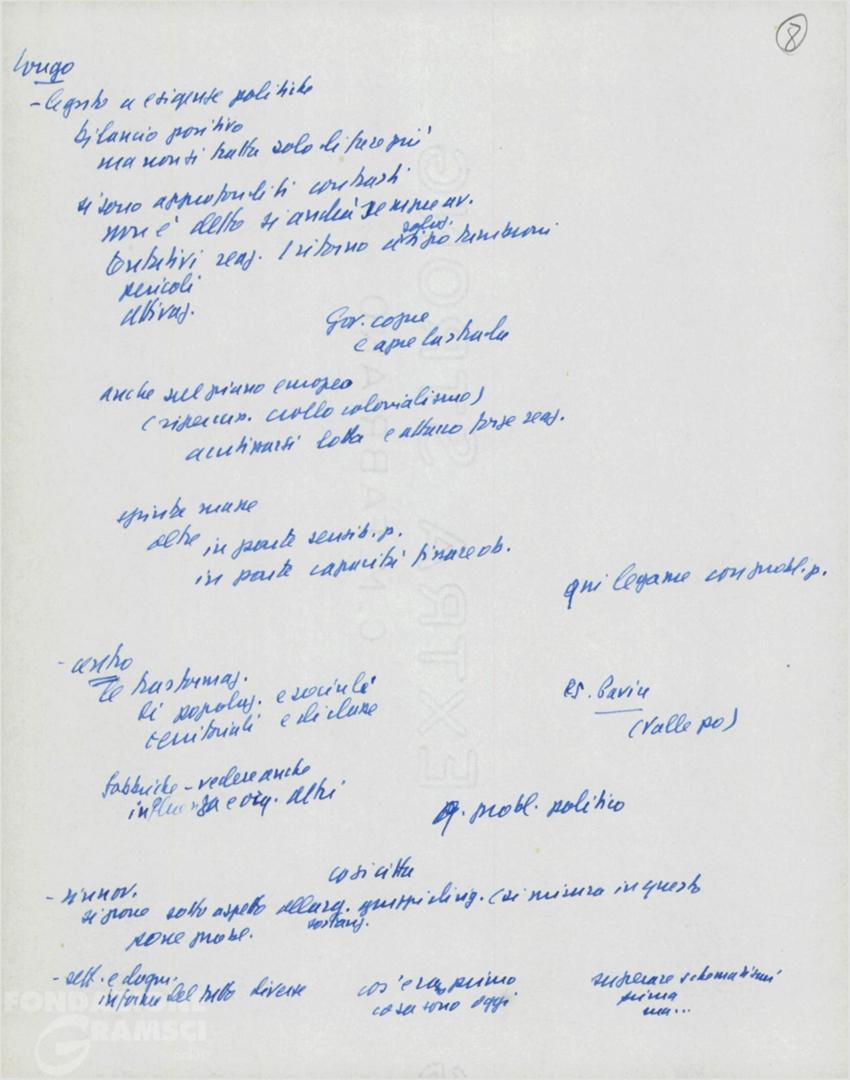 8
Longo
- legato a esigenze politiche
bilancio positivo
ma non si tratta solo di fare più
si sono approfonditi contrasti
non è detto si andrà sempre av.
tentativi reaz. / ritorno a tipo Tambroni
pericoli
attivaz.
Gov. copre
e apre la strada
anche sul piano europeo
(ripercus. crollo colonialismo)
acutizzarsi lotta e attacco forze reaz.
spinta masse
oltre in parte sensib. p.
in parte capacità
qui legame con probl. p.
- centro
le trasformaz.
di popolaz. e società
territoriali e di classe
es. Pavia
(Valle Po)
fabbriche - vedere anche
influenza e org. altri
q. probl. politico
così città
- rinnov.
si pone sotto aspetto allarg. gruppi dirig. (si misura in questo
sostanz.
pone probl.
- sett. e dogm.
in forme del tutto diverse
cos'era prima
cosa sono oggi
superare schematismi
prima
ma...
FONDAZIONE
GRAMSCI
EXTRA STRONG